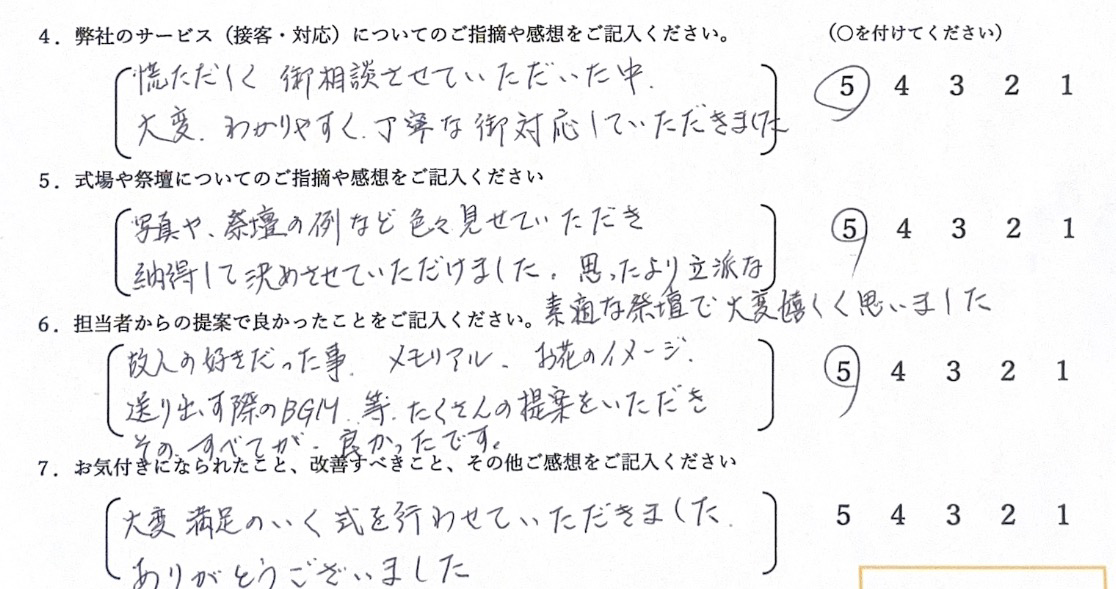 4．弊社のサービス（接客・対応）についてのご指摘や感想をご記入ください。 （○を付けてください）
慌ただしく 御相談させていただいた中、 5 4 3 2 1
大変、わかりやすく、丁寧な御対応していただきました
5．式場や祭壇についてのご指摘や感想をご記入ください
写真や、祭壇の例など色々見せていただき 5 4 3 2 1
納得して決めさせていただけました。思ったより立派な
素適な祭壇で大変嬉しく思いました
6．担当者からの提案で良かったことをご記入ください。
故人の好きだった事、メモリアル、お花のイメージ、 5 4 3 2 1
送り出す際のBGM、等、たくさんの提案をいただき
その、すべてが、良かったです。
7．お気付きになられたこと、改善すべきこと、その他ご感想をご記入ください
大変満足のいく式を行わせていただきました、 5 4 3 2 1
ありがとうございました